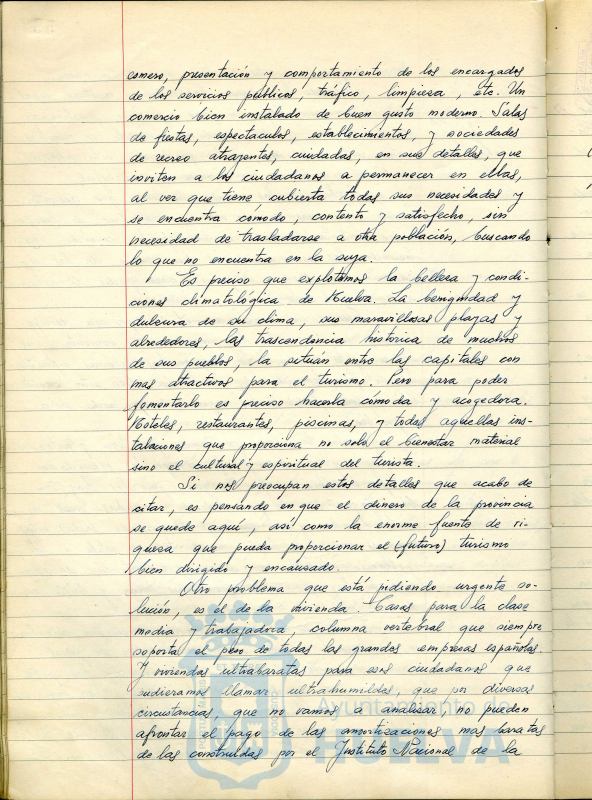 esmero, presentación y comportamiento de los encargados
de los servicios públicos, tráfico, limpieza, etc. Un
comercio bien instalado de buen gusto moderno. Salas
de fiestas, espectaculos, establecimientos, y sociedades
de recreo atrayentes, cuidadas, en sus detalles, que
inviten a los ciudadanos a permanecer en ellas,
al ver que tiene cubierta todas sus necesidades y
se encuentra cómodo, contento y satisfecho, sin
necesidad de trasladarse a otra población, buscando
lo que no encuentra en la suya.
Es preciso que explotemos la belleza y condi-
ciones climatológica de Huelva. La benignidad y
dulzura de su clima, sus maravillosas playas y
alrededores, las trascendencia historica de muchos
de sus pueblos, la situán entre las capitales con
mas atractivos para el turismo. Pero para poder
fomentarlo es preciso hacerla cómoda y acogedora.
Hoteles, restaurantes, piscinas, y todas aquellas ins-
talaciones que proporciona no solo el bienestar material
sino el cultural y espiritual del turista.
Si nos preocupan estos detalles que acabo de
citar, es pensando en que el dinero de la provincia
se quede aquí, así como la enorme fuente de ri-
queza que pueda proporcionar el (futuro) turismo
bien dirigido y encausado.
Otro problema que está pidiendo urgente so-
lución, es el de la vivienda. Casas para la clase
media y trabajadora, columna vertebral que siempre
soporta el peso de todas las grandes empresas españolas.
Y viviendas ultrabaratas para esos ciudadanos que
pudieramos llamar ultrahumildes, que por diversas
circustancias, que no vamos a analizar, no pueden
afrontar el pago de las amortizaciones mas baratas
de las construidas por el Instituto Nacional de la
Ayuntamiento de
HUELVA